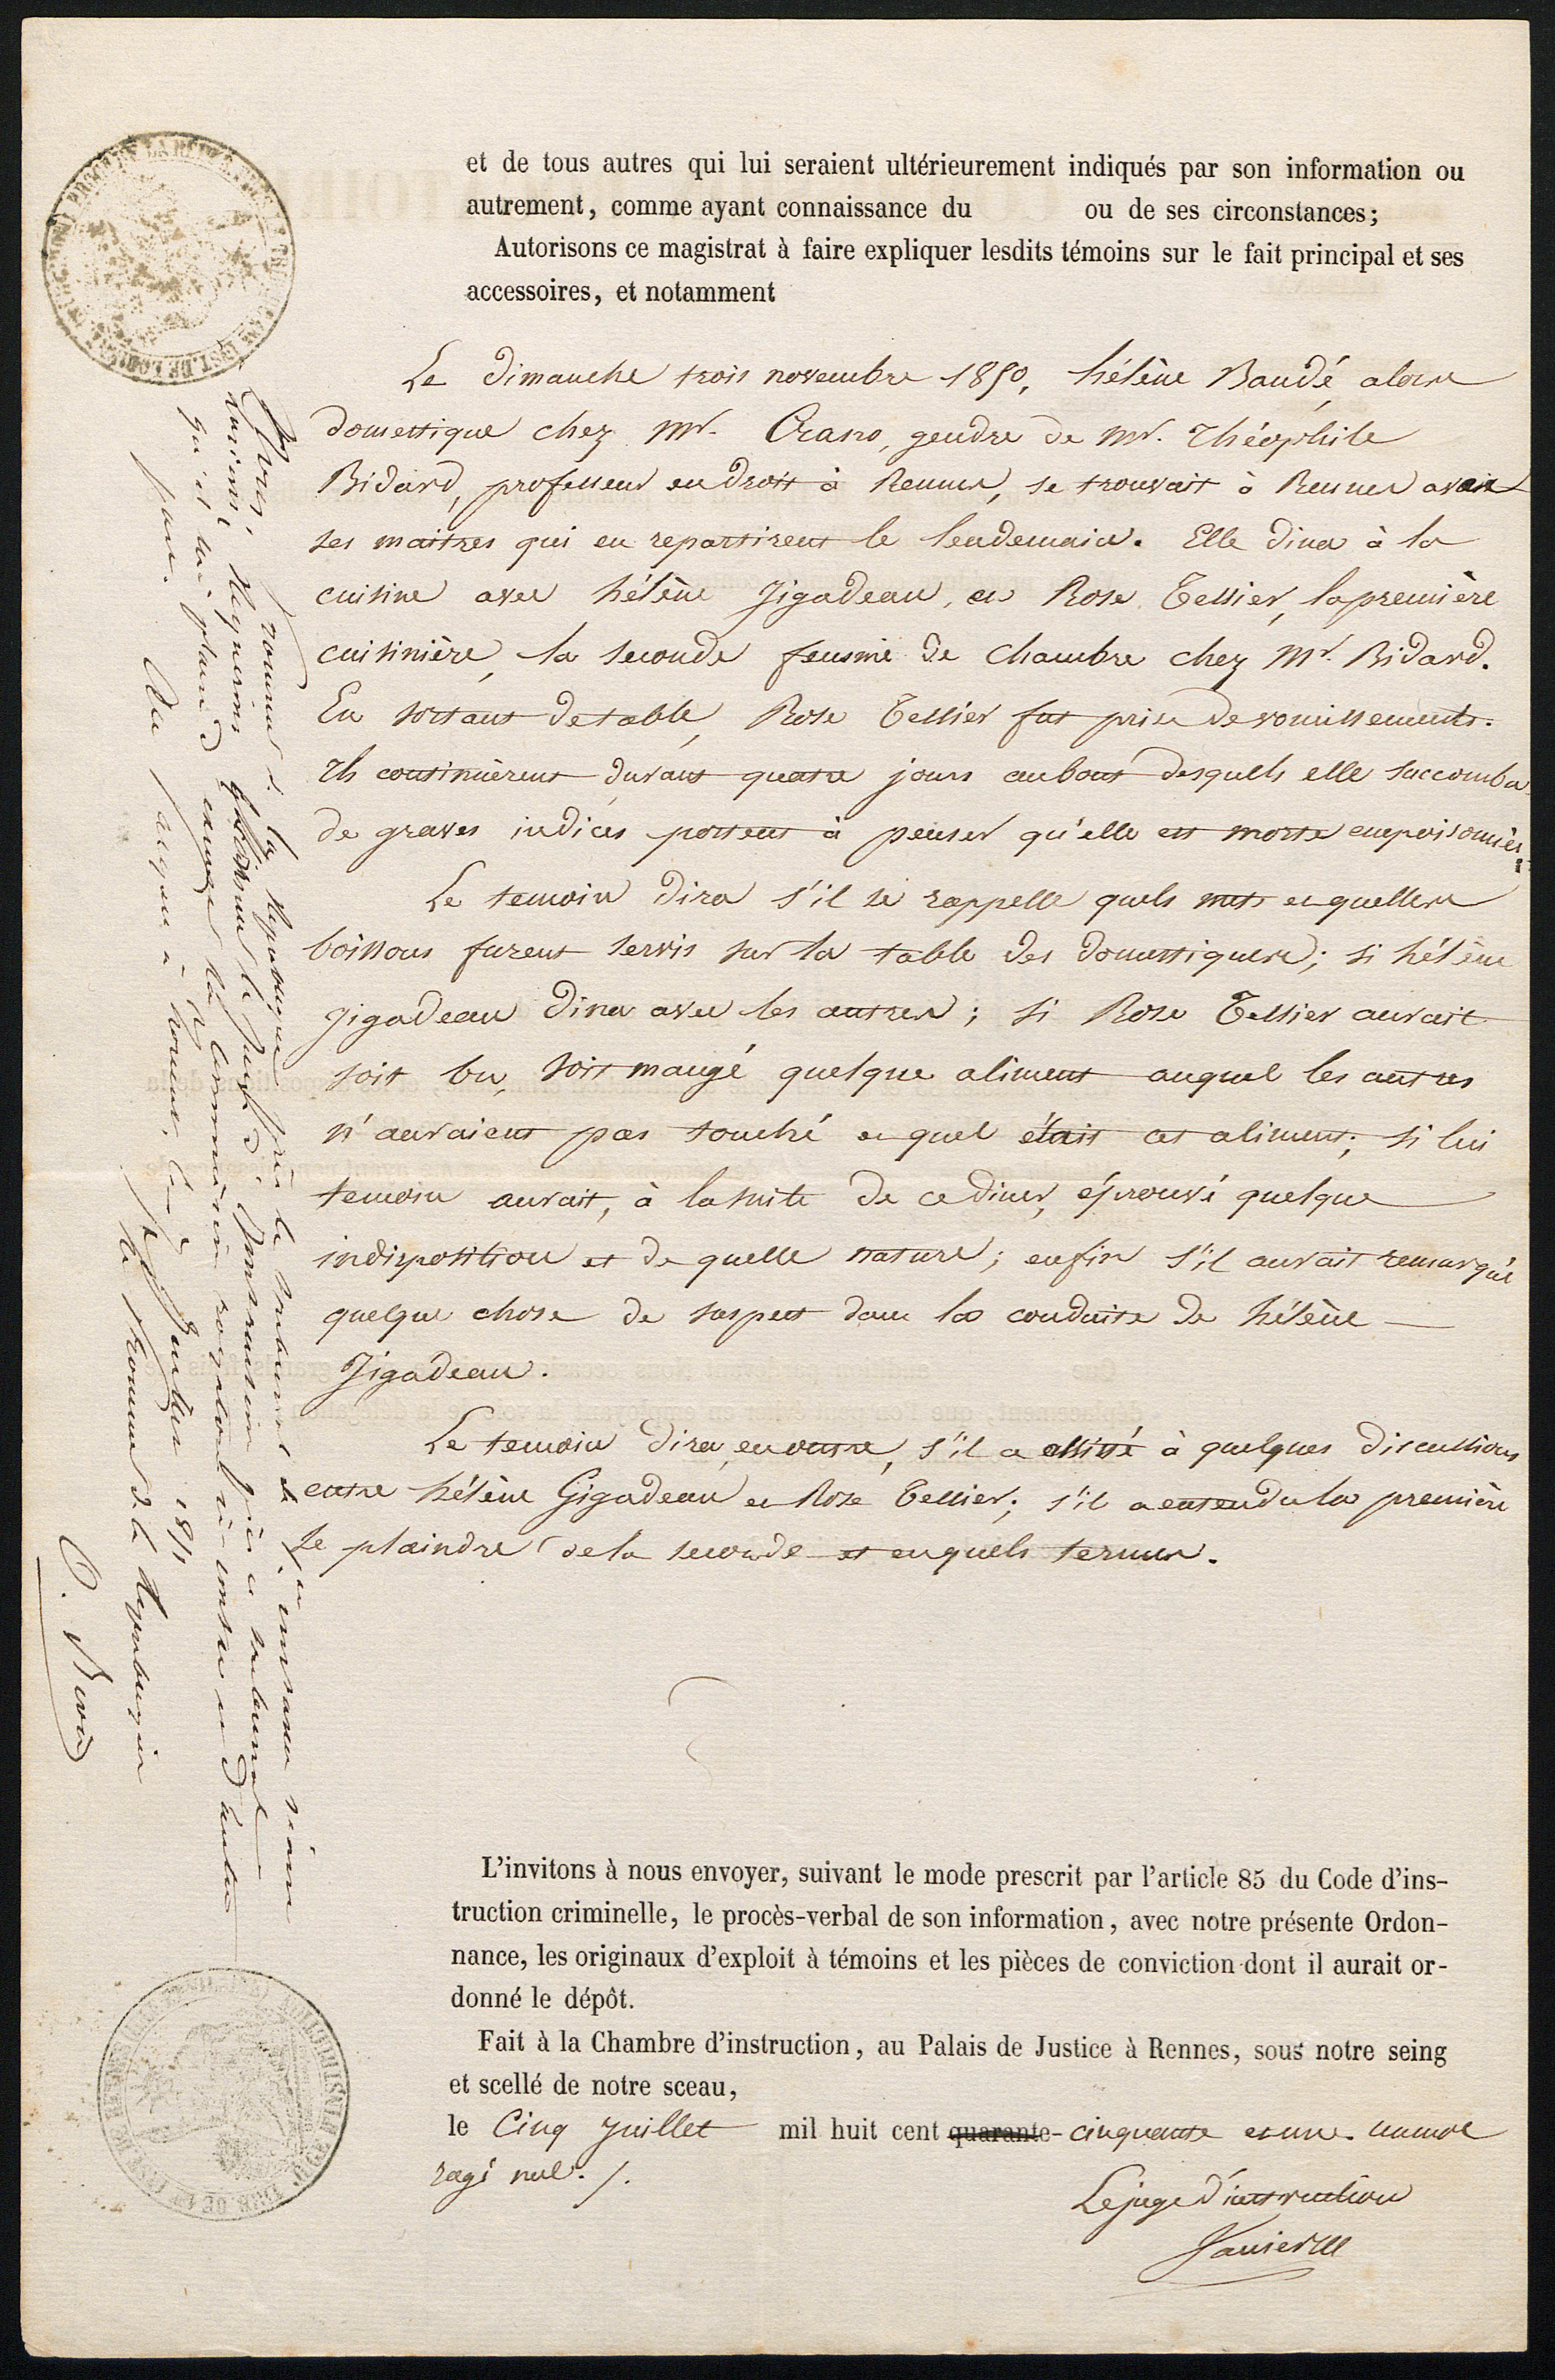 et de tous autres qui lui seraient ultérieurement indiqués par son information ou
autrement, comme ayant connaissance du ou de ses circonstances;
Autorisons ce magistrat à faire expliquer lesdits témoins sur le fait principal et ses
accessoires, et notamment
Le dimanche trois novembre 1850, hélène Baudé, alors
domestique chez Mr. Crano, gendre de Mr. Théophile
Bidard, professeur en droit à Rennes, se trouvait à Rennes avec
ses maitres qui en repartirent le lendemain. Elle dina à la
cuisine avec hélène Jigadeau, et Rose Tessier, la première
cuisinière, la seconde femme de chambre chez Mr. Bidard.
En sortant de table, Rose Tessier fut prise de vomissements.
Ils continuèrent durant quatre jours au bout desquels elle succomba.
de graves indices portent à penser qu'elle est morte empoisonnée.
Le temoin dira s'il se rappelle quels mets et quelles
boissons furent servis sur la table des domestiques; si hélène
Jigadeau dina avec les autres; si Rose Tessier aurait
soit bu, soit mangé quelque aliment auquel les autres
n'auraient pas touché et quel était cet aliment; si lui
temoin aurait, à la suite de ce diner, éprouvé quelque
indisposition et de quelle nature; enfin s'il aurait remarqué
quelque chose de suspect dans la conduite de hélène
Jigadeau.
Le temoin dira, en outre, s'il a assisté à quelques discussions
entre hélène Gigadeau et Rose Tessier; s'il a entendu la première
se plaindre de la seconde et en quels termes.
L'invitons à nous envoyer, suivant le mode prescrit par l'article 85 du Code d'ins-
truction criminelle, le procès-verbal de son information, avec notre présente Ordon-
nance, les originaux d'exploit à témoins et les pièces de conviction dont il aurait or-
donné le dépôt.
Fait à la Chambre d'instruction, au Palais de Justice à Rennes, sous notre seing
et scellé de notre sceau,
le Cinq Juillet mil huit cent quarante-cinquante et une. un mot
rayé nul. /.
Le juge d'instruction
Nous, Procureur de la République près le tribunal de 1re instance séant
Requérons le juge d'Instruction près ce tribunal
qu'il lui plaise exécuter la Commission rogatoire ci-contre et d'autre
part. Au parquet à Lorient, le Juillet 1851
Le Procureur de la République